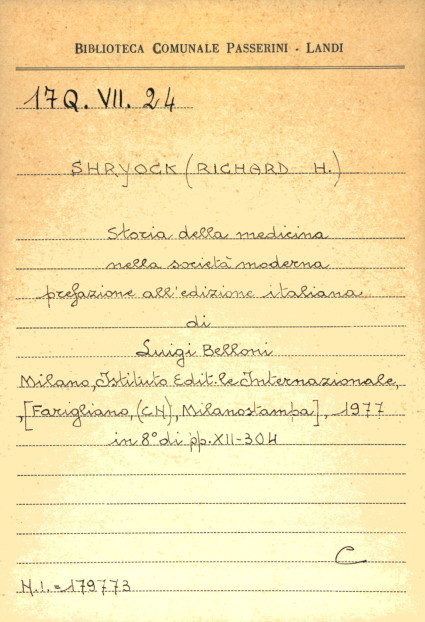 BIBLIOTECA COMUNALE PASSERINI - LANDI
17Q. VII. 24
SHRYOCK (RICHARD H.)
Storia della medicina
nella società moderna
prefazione all'edizione italiana
di
Luigi Belloni
Milano, Istituto Edit.le Internazionale,
,[Farigliano, (CN), Milanostampa], 1977
in 8° di pp. XII-304
C
N.I. = 179773